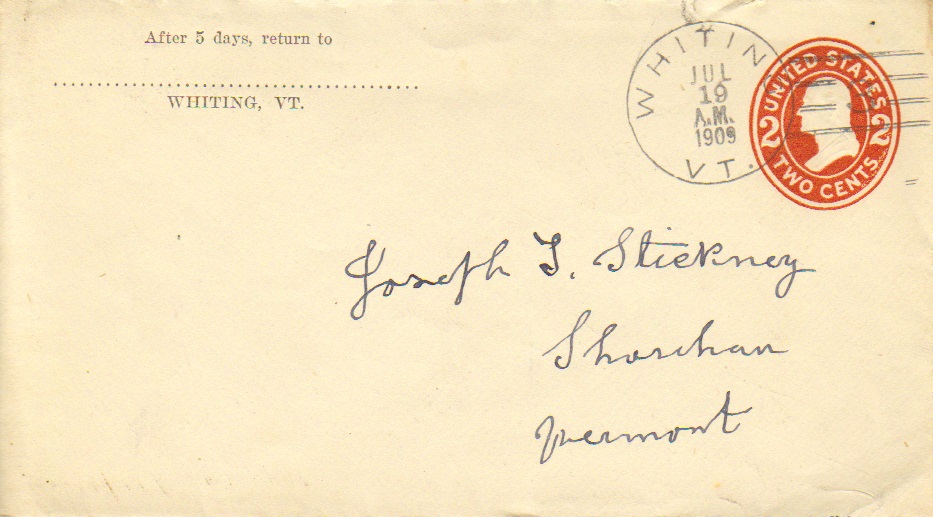 After 5 days, return to
WHITING, VT.
WHITIN
JUL
19
A.M.
1909
VT.
UNITED STATES
2 2
TWO CENTS
Joseph T. Stickney
Shoreham
Vermont